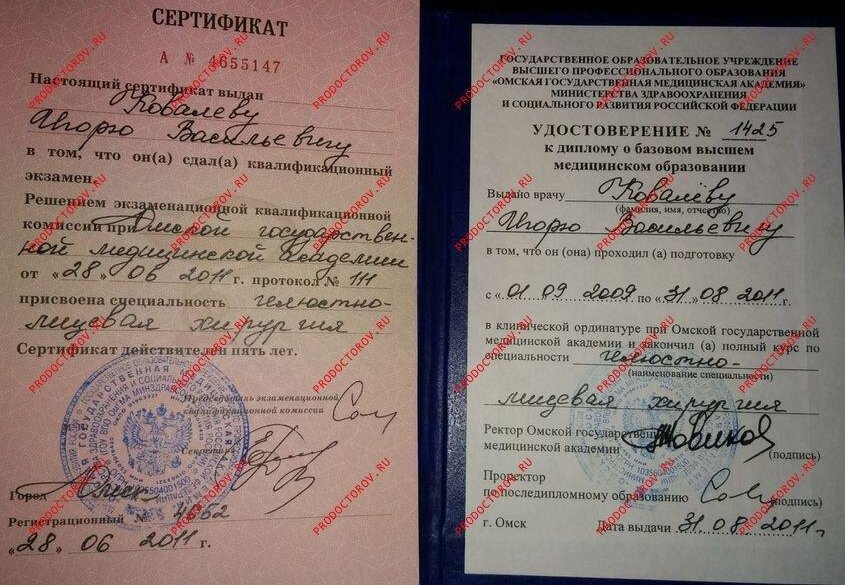 СЕРТИФИКАТ
А № 4655147
Настоящий сертификат выдан
Ковалеву
Игорю Васильевичу
в том, что он(а) сдал(а) квалификационный
экзамен.
Решением экзаменационной квалификационной
комиссии при Омской государствен-
ной медицинской академии
от «28» 06 2011 г. протокол № 111
присвоена специальность челюстно-
лицевая хирургия
Сертификат действителен пять лет.
Председатель экзаменационной
квалификационной комиссии
Секретарь
Город Омск
Регистрационный № 4652
«28» 06 2011 г.
ГОСУДАРСТВЕННОЕ ОБРАЗОВАТЕЛЬНОЕ УЧРЕЖДЕНИЕ
ВЫСШЕГО ПРОФЕССИОНАЛЬНОГО ОБРАЗОВАНИЯ
«ОМСКАЯ ГОСУДАРСТВЕННАЯ МЕДИЦИНСКАЯ АКАДЕМИЯ»
МИНИСТЕРСТВА ЗДРАВООХРАНЕНИЯ
И СОЦИАЛЬНОГО РАЗВИТИЯ РОССИЙСКОЙ ФЕДЕРАЦИИ
УДОСТОВЕРЕНИЕ № 1425
к диплому о базовом высшем
медицинском образовании
Выдано врачу Ковалёву
(фамилия, имя, отчество)
Игорю Васильевичу
в том, что он (она) проходил (а) подготовку
с «01 09 2009 по «31» 08 2011 г.
в клинической ординатуре при Омской государственной
медицинской академии и закончил (а) полный курс по
специальности челюстно-
(наименование специальности)
лицевая хирургия
Ректор Омской государственной
медицинской академии
(подпись)
Проректор
по последипломному образованию
(подпись)
г. Омск Дата выдачи 31.08.2011г.
PRODOCTOROV.RU